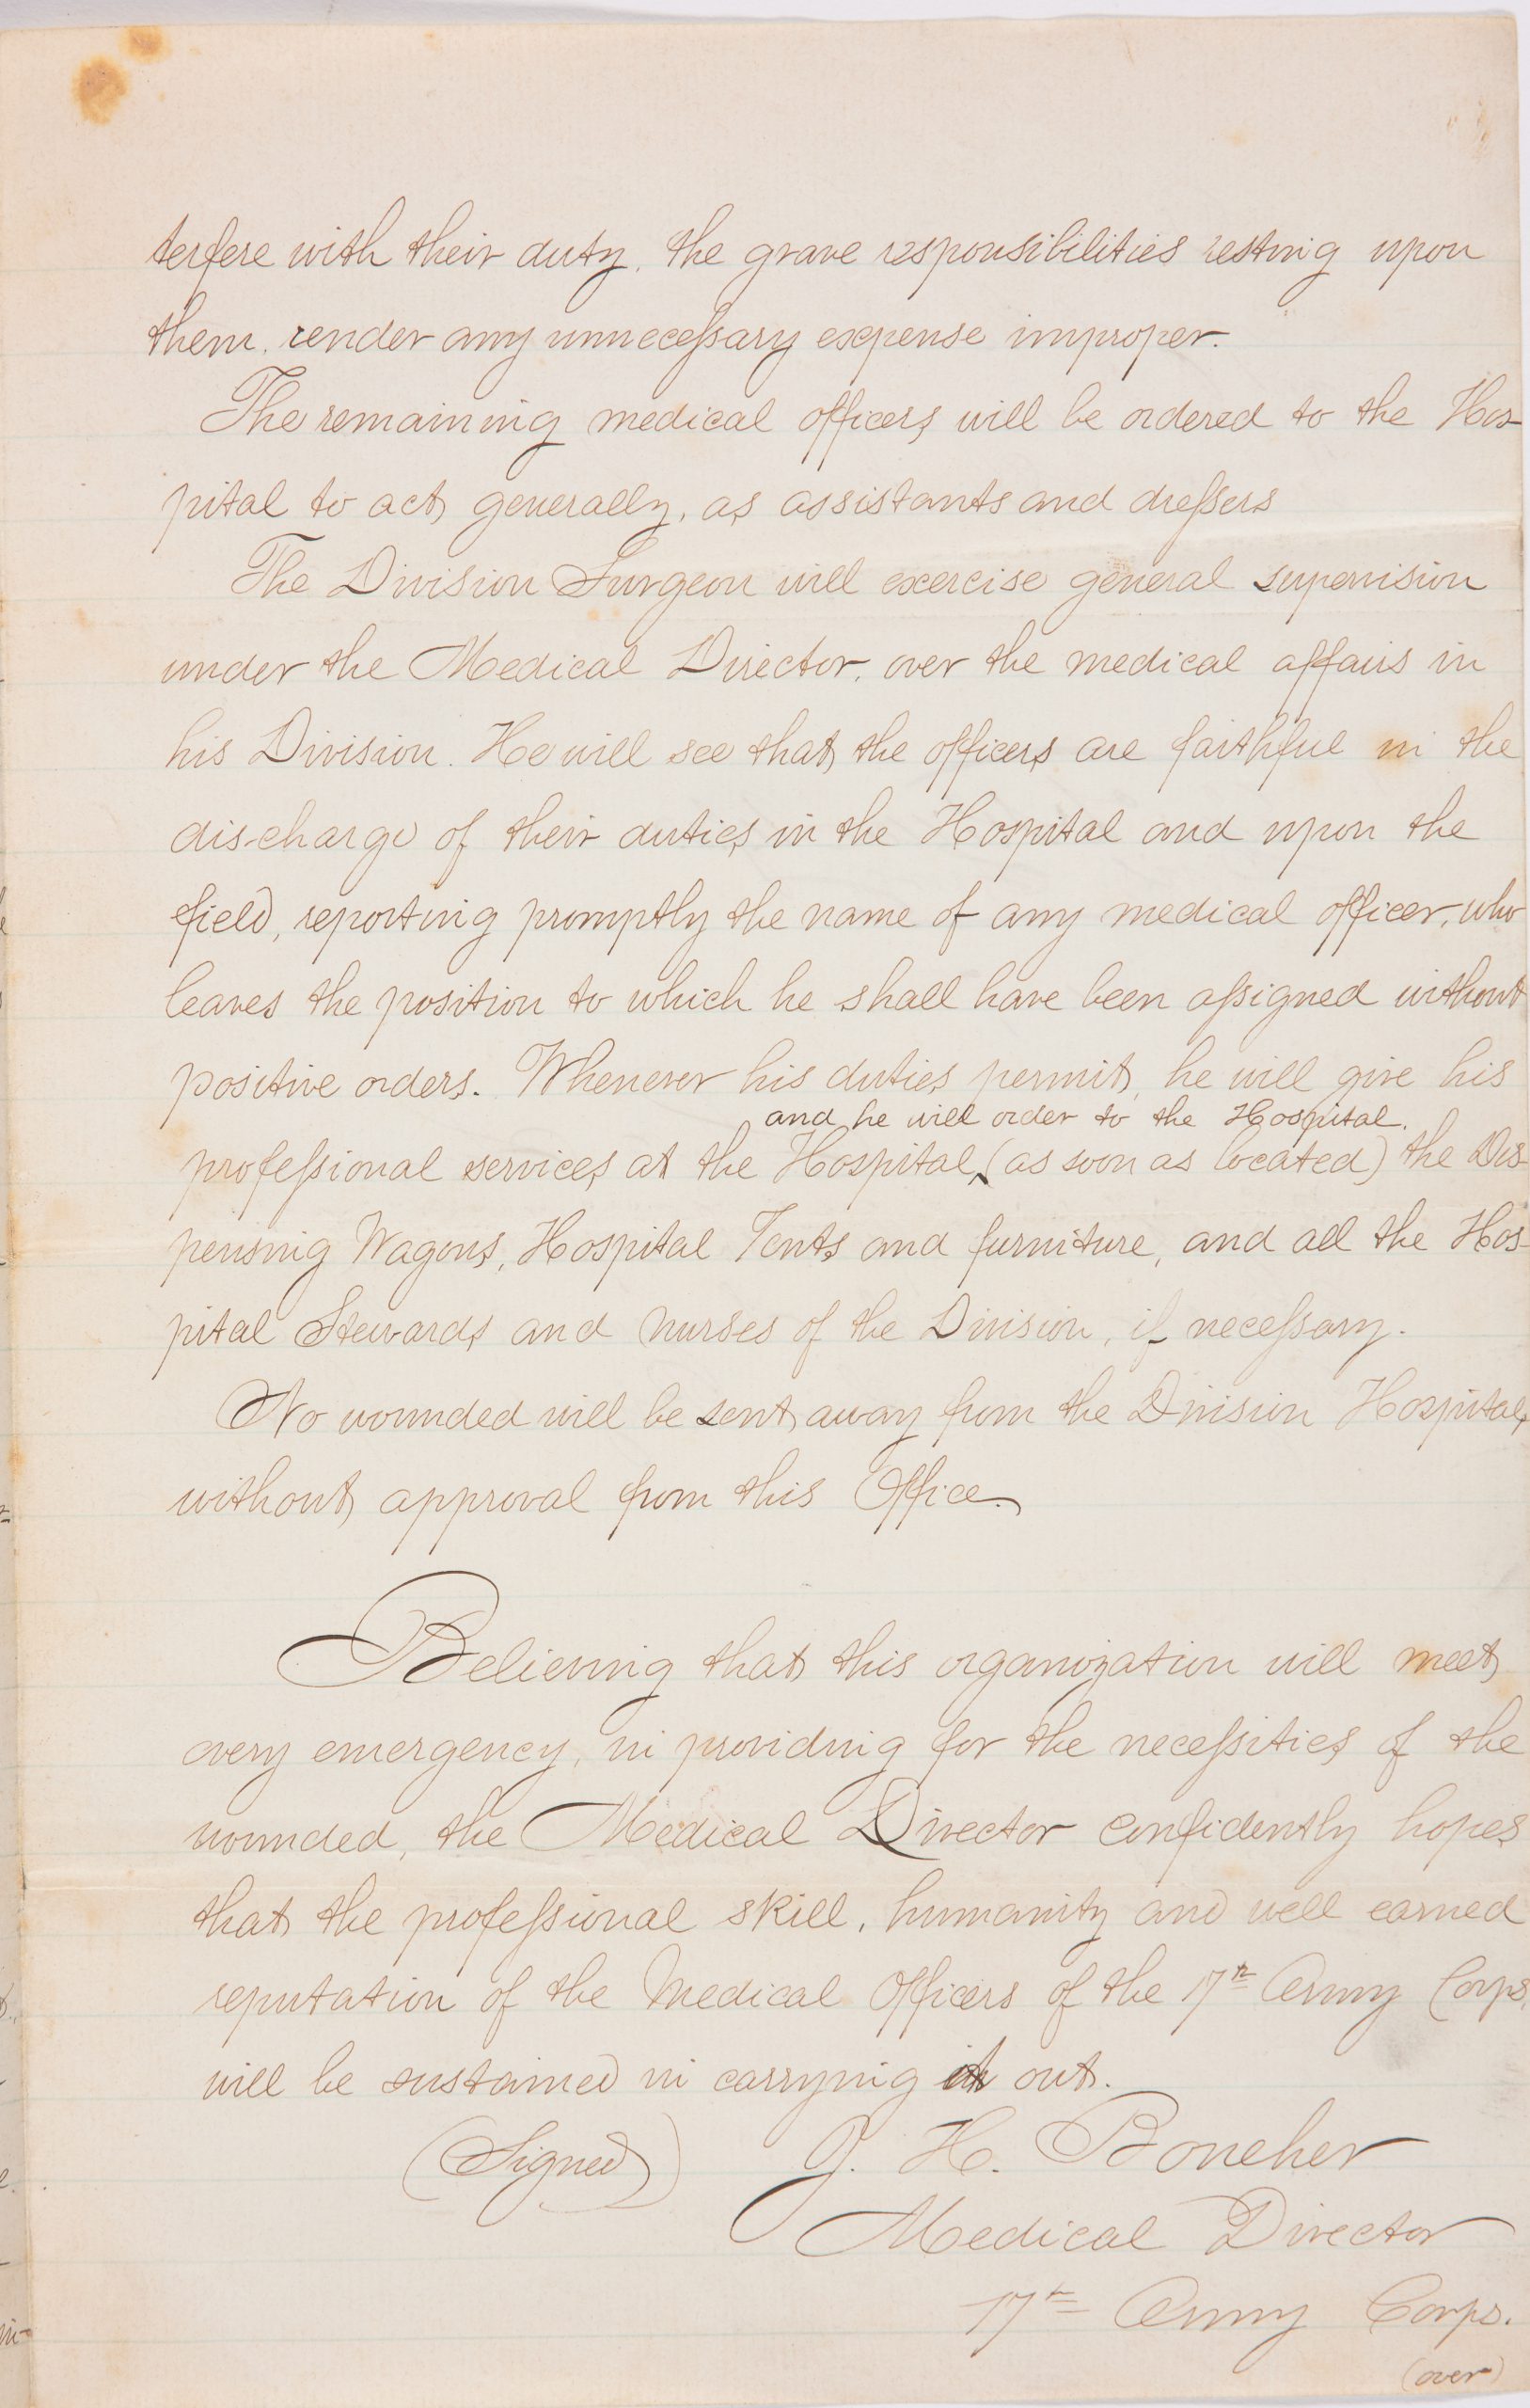 terfere with their duty. the grave responsibilities resting upon
them. render any unnecessary expense improper.
The remaining medical officers will be ordered to the Hos-
pital to act, generally, as assistants and dressers
The Division Surgeon will exercise general supervision
under the Medical Director, over the medical affairs in
his Division. He will see that the officers are faithful in the
dis-charge of their duties in the Hospital and upon the
field, reporting promptly the name of any medical officer, who
leaves the position to which he shall have been assigned without
positive orders. Whenever his duties permit, he will give his
and he will order to the Hospital.
professional services at the Hospital, (as soon as located) the Dis-
pensing Wagons, Hospital Tents and furniture, and all the Hos-
pital Stewards and Nurses of the Division, if necessary.
No wounded will be sent away from the Division Hospital,
without approval from this Office.
Believing that this organization will meet
every emergency, in providing for the necessities of the
wounded, the Medical Director confidently hopes
that the professional skill, humanity and well earned
reputation of the Medical Officers of the 17th Army Corps,
will be sustained in carrying it out.
(Signed) J. H. Boucher
Medical Director
17th Army Corps.
(over)